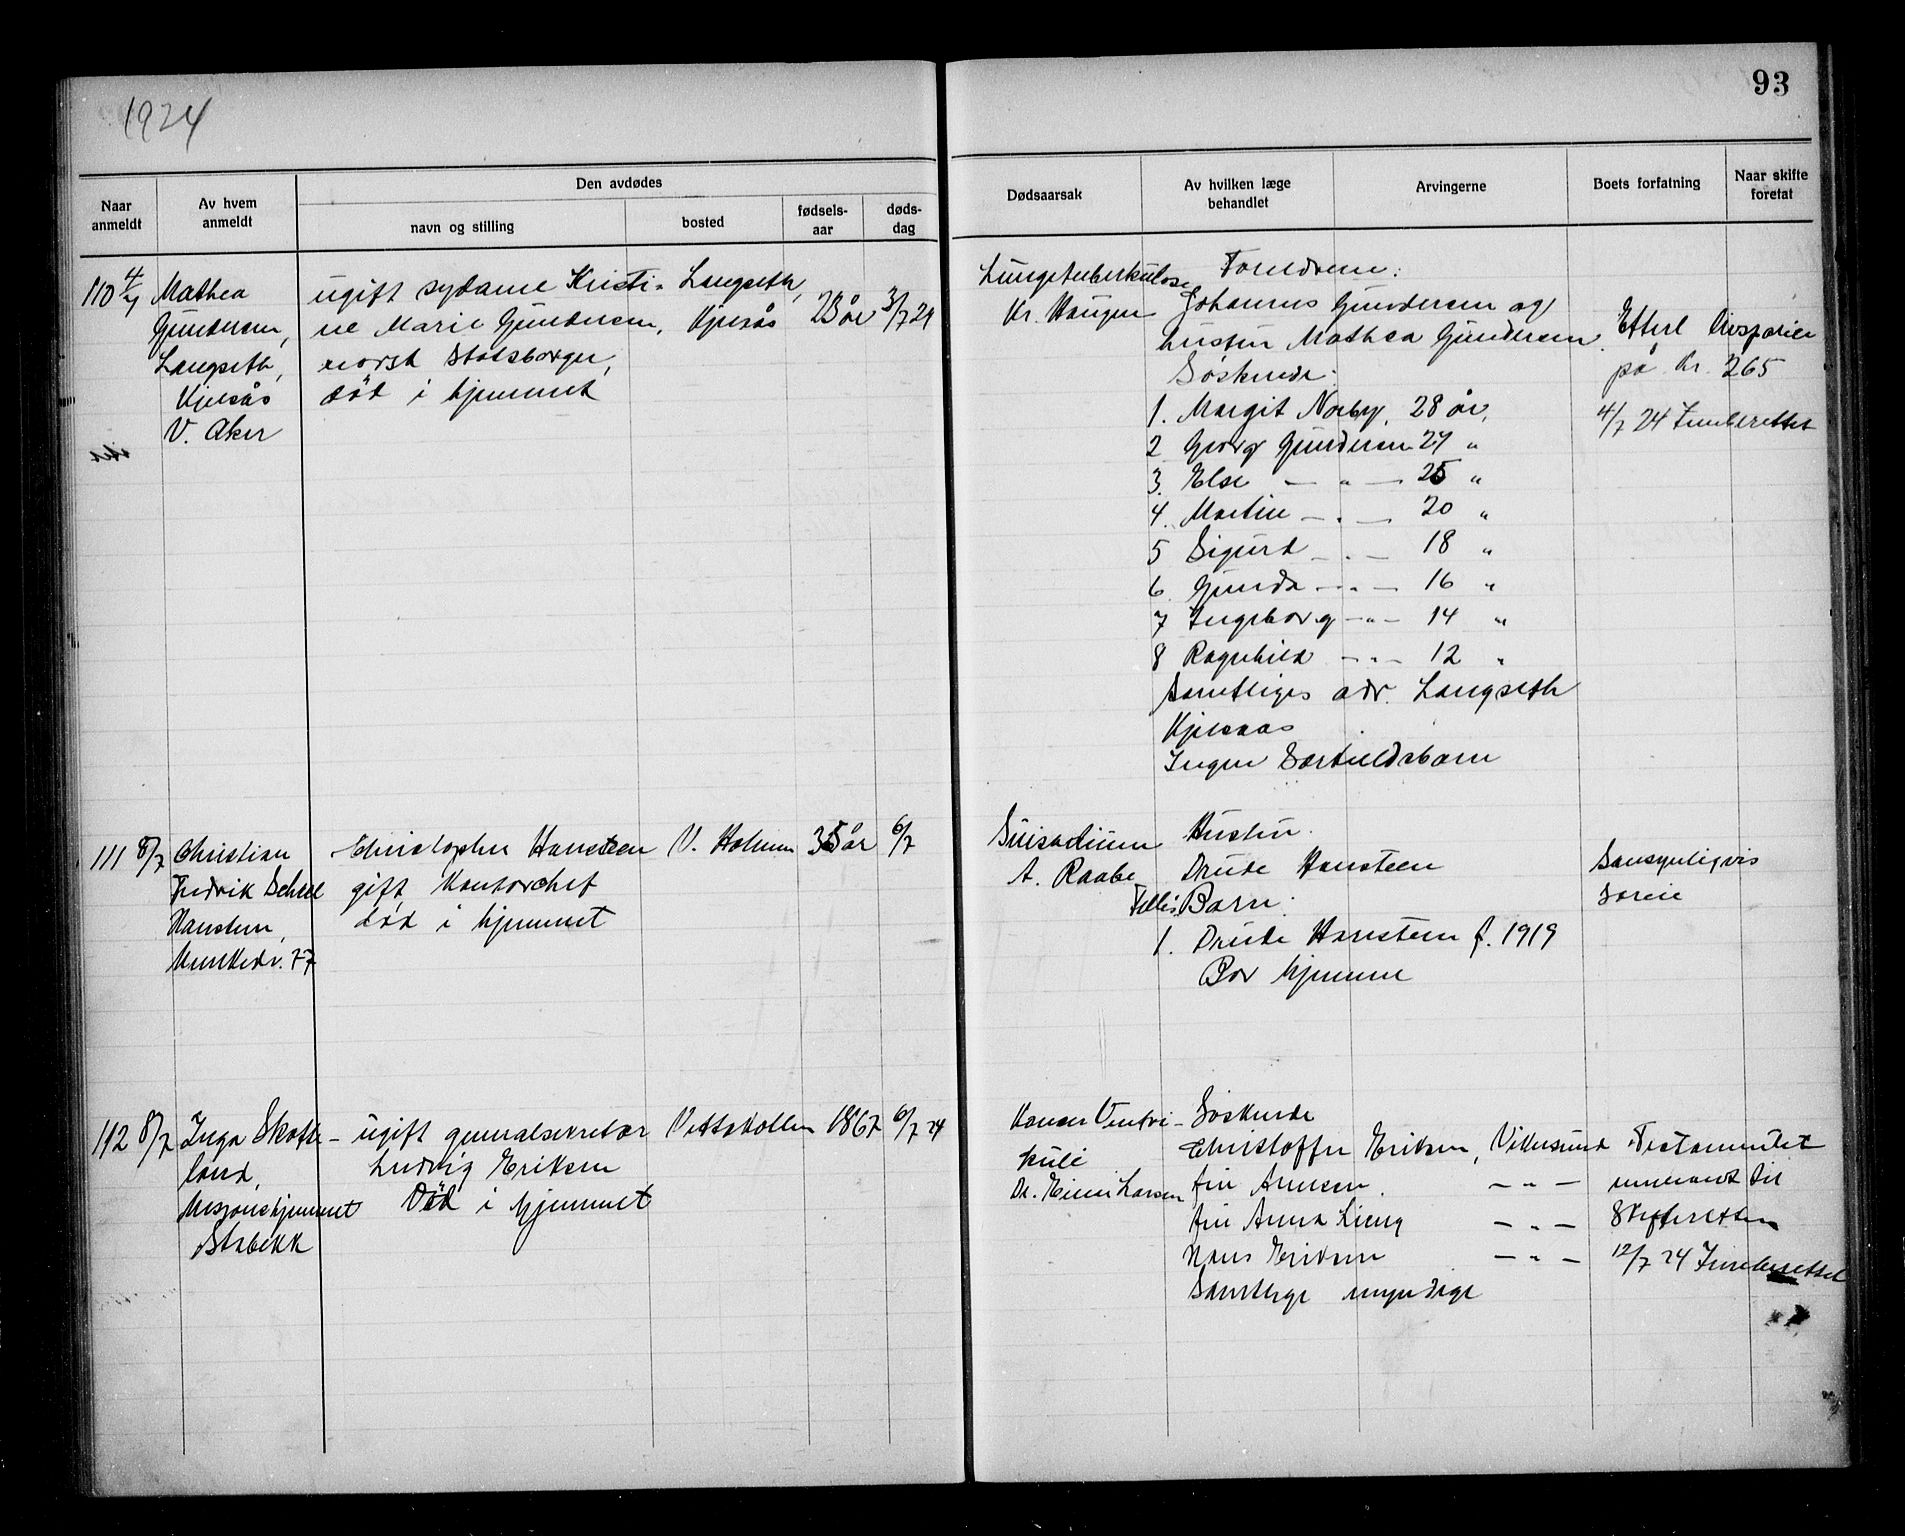 1924
93
Naar anmeldt
Av hvem anmeldt
Den avdødes
navn og stilling
bosted
fødsels-aar
døds-dag
Dødsaarsak
Av hvilken læge behandlet
Arvingerne
Boets forfatning
Naar skifte foretat
110 4/7
Mathea
Gundersen,
Langseth,
Kjelsås
V. Aker
ugift sydame Kristi-
ne Marie Gundersen,
norsk statsborger,
död i hjemmet
Langseth,
Kjelsås
23 år
3/7 24
Lungetuberkulose
Kr. Haugen
Foreldrene:
Johannes Gundersen og
hustru Mathea Gundersen
Søskende:
1. Margit Norby, 28 år,
2 Georg Gundersen 27 "
3. Else — " — 25 "
4. Martin — " — 20 "
5 Sigurd — " — 18 "
6. Gunda — " — 16 "
7 Ingeborg — " — 14 "
8 Ragnhild — " — 12 "
Samtliges adr. Langseth
Kjelsaas
Ingen Særkuldsbarn
Etterl
på kr. 265
4/7 24 Innberettet
111 8/7
Christian
Fredrik Scheel
Hansteen,
Munkedr. 77
Christopher Hansteen
gift, Kontorchef
død i hjemmet
V. Holmen
35 år
6/7
Suisidium
A. Raabe
Hustru:
Drude Hansteen
Felles Barn:
1. Drude Hansteen f. 1919
Bor hjemme
Sansynligvis
112 8/7
Inga Skoth-
land,
Misjonshjemmet
Stabekk
ugift generalsekretær
Ludvig Eriksen
Död i hjemmet
Vettakollen
1867
6/7 24
Kancer Ventri-
kuli
Dr. Einar Larsen
Søskende
Christoffer Eriksen, Vikersund
— " —
Anna Lieng — " —
Hans Eriksen — " —
Samtlige myndige
Testamentet
innleveret til
Skifteretten
12/7 24 Innberettet